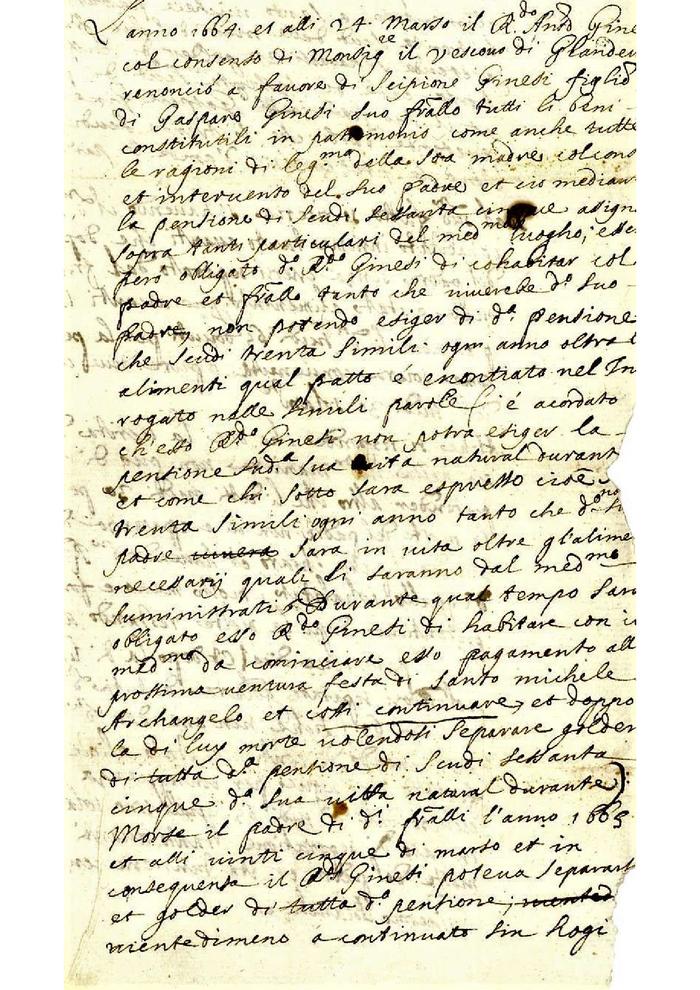 L'anno 1664 et alli 24 Marzo il R.do Ant.o Gine
col consenso di Monsig.re il vescovo di Glandev
renonciò a favore di Scipione Ginesi figlio
di Gaspare Ginesi suo frãllo tutti li beni
constitutili in patrimonio come anche tutte
le ragioni di leg.ma della sua madre col cons
et intervento del suo padre et cio median
la pensione di Scudi sessanta cinque assign
sopra tanti particulari del med.mo luogho, esse
però obligato d.o R.do Ginesi di cohabitar col
padre et frãllo tanto che viverebe d.o suo
padre, non potendo esiger di d.a pensione
che scudi trenta simili ogni anno oltra
alimenti qual patto é enontiato nel In
rogato nelle simili parole ( é acordato
ch'esso R.do Ginesi non potra esiger la
pensione sud.a sua vita natural durant
et come chi sotto sara espresso cioè
trenta simili ogni anno tanto che d.o su
padre vivera sara in vita oltre gl'alime
necessarij quali li saranno dal med.mo
suministrati, Durante qual tempo sara
obligato esso R.do Ginesi di habitare con
med.mo da cominciare esso pagamento all
prossima ventura festa di santo michele
Archangelo et cossi continuare, et doppo
la di luy morte volendosi separare golder
di tutta d.a pensione di scudi sessanta
cinque d.a sua vitta natural durante)
Morse il padre di d.i frãlli l'anno 1665
et alli vinti cinque di marzo et in
consequenza il R.do Ginesi poteva separars
et golder di tutta d.a pensione,
nientedimeno a continuato sin hogi